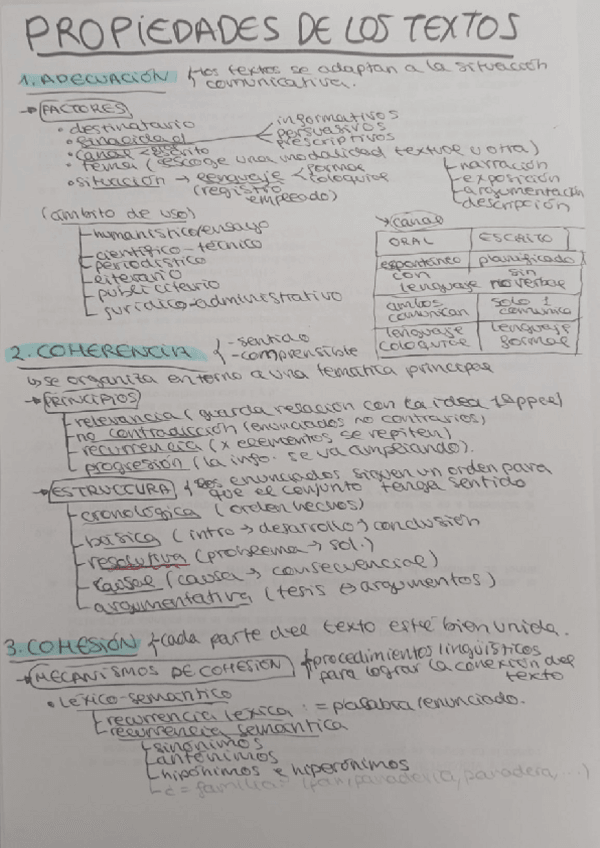 PROPIEDADES DE LOS TEXTOS
1. ADECUACIÓN { los textos se adaptan a la situación
comunicativa.
→ FACTORES
• destinatario
• finalidad < informativos
persuasivos
prescriptivos
• canal < escrito
• tema (escoge una modalidad textual u otra)
narración
exposición
argumentación
descripción
• situación → lenguaje < formal
coloquial
(registro
empleado)
(ámbito de uso)
humanístico/ensayo
científico-técnico
periodístico
literario
publicitario
jurídico-administrativo
canal
ORAL ESCRITO
espontáneo planificado
con lenguaje sin no verbal
ambos comunican solo 1 comunica
lenguaje coloquial lenguaje formal
2. COHERENCIA { - sentido
- comprensible
↳ se organiza entorno a una temática principal
→ PRINCIPIOS
relevancia (guarda relación con la idea 1 (ppal)
no contradicción (enunciados no contrarios)
recurrencia (x elementos se repiten)
progresión (la info. se va ampliando).
→ ESTRUCTURA { los enunciados siguen un orden para
que el conjunto tenga sentido
cronológica (orden hechos)
básica (intro → desarrollo → conclusión
resolutiva (problema → sol.)
causal (causa → consecuencia)
argumentativa (tesis ↔ argumentos)
3. COHESIÓN { cada parte del texto esté bien unida.
→ MECANISMOS DE COHESIÓN { procedimientos lingüísticos
para lograr la conexión del
texto
• léxico-semántico
recurrencia léxica : = palabra/enunciado.
recurrencia semántica
sinónimos
antónimos
hipónimos e hiperónimos
c = familia: (pan, panadería, panadera, ...)